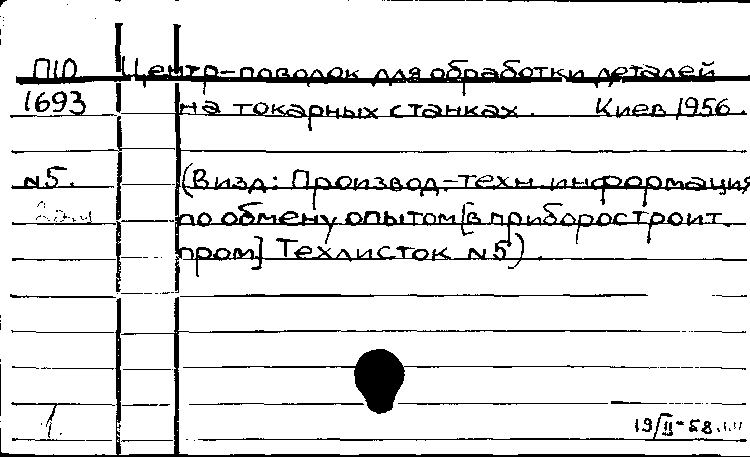 П10 Центр-поводок для обработки деталей
1693 на токарных станках. Киев 1956.
N5. (В изд: Производ.-техн. информация
по обмену опытом [в приборостроит.
пром] Техлисток N5).
1.
19/II-58